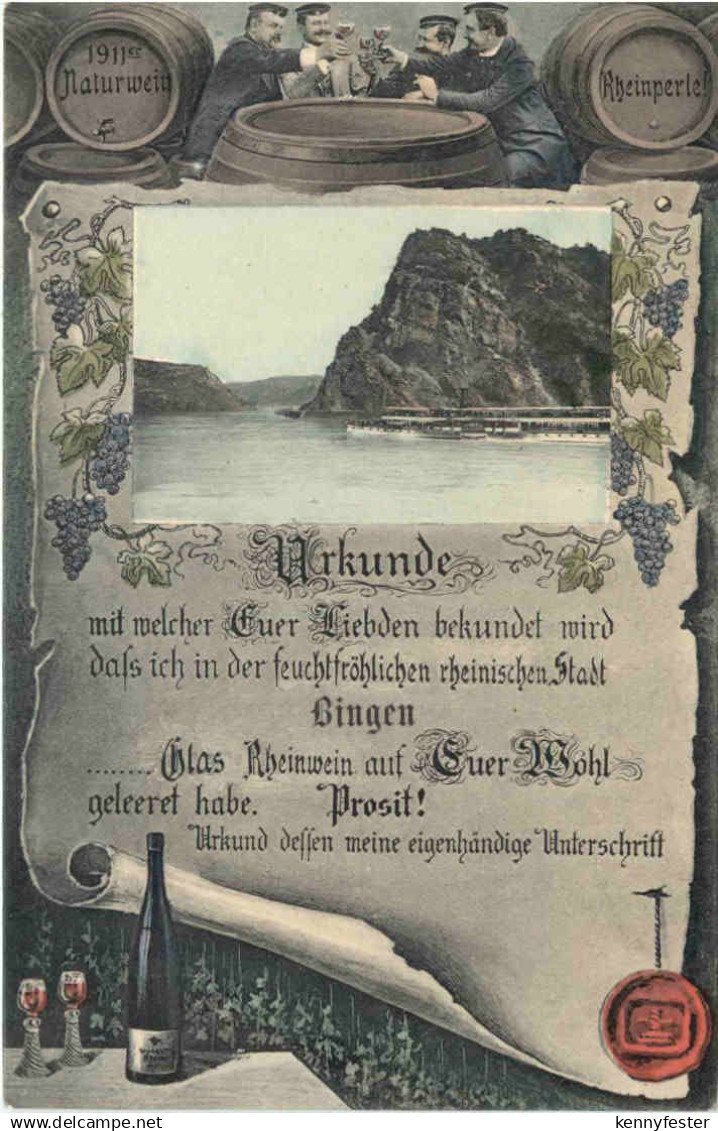 1911er
Naturwein
Rheinperle!
Urkunde
mit welcher Euer Liebden bekundet wird
daſs ich in der feuchtfröhlichen rheinischen Stadt
Bingen
........ Glas Rheinwein auf Euer Wohl
geleeret habe. Prosit!
Urkund deſſen meine eigenhändige Unterschrift
kennyfester